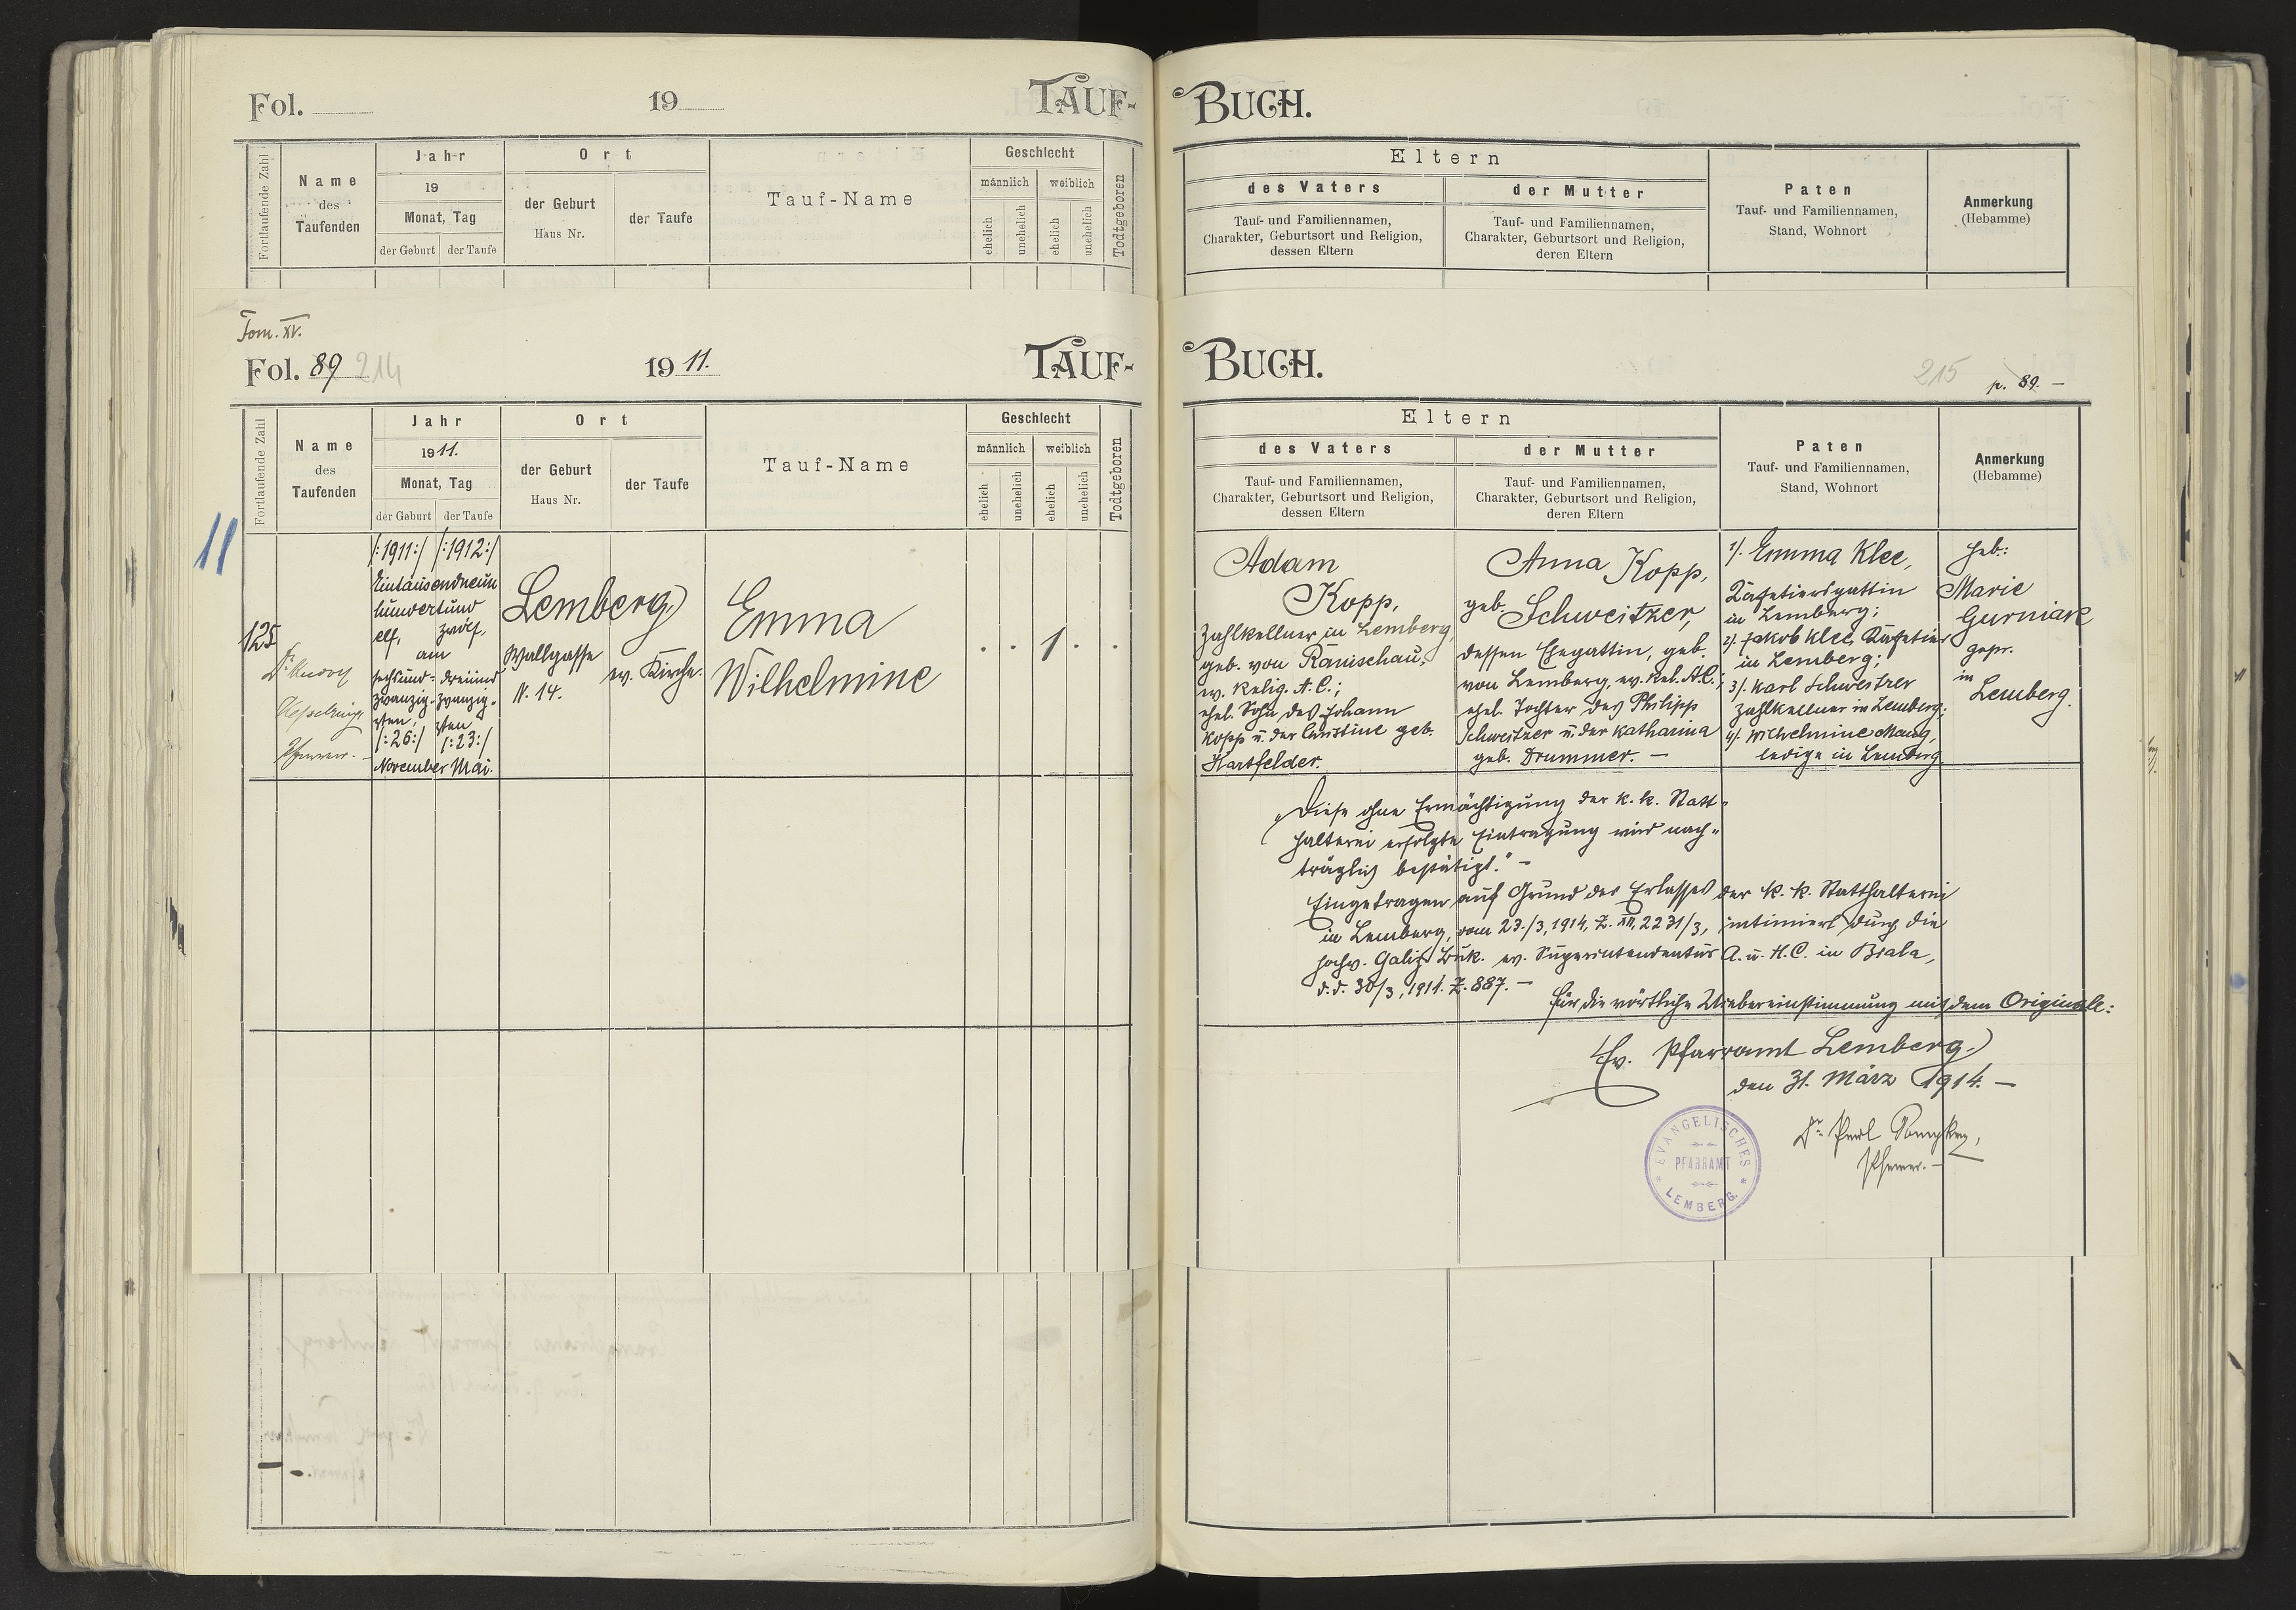 Fol. 19 TAUF-BUCH.
Fortlaufende Zahl
Name
des
Taufenden
Jahr
19
Monat, Tag
der Geburt
der Taufe
Ort
der Geburt
Haus Nr.
der Taufe
Tauf-Name
Geschlecht
männlich
weiblich
ehelich
unehelich
ehelich
unehelich
Todtgeboren
Eltern
des Vaters
Tauf- und Familiennamen,
Charakter, Geburtsort und Religion,
dessen Eltern
der Mutter
Tauf- und Familiennamen,
Charakter, Geburtsort und Religion,
deren Eltern
Paten
Tauf- und Familiennamen,
Stand, Wohnort
Anmerkung
(Hebamme)
Tom. XV.
Fol. 89 214
1911.
TAUF-BUCH.
215 p. 89. —
Fortlaufende Zahl
Name
des
Taufenden
Jahr
1911.
Monat, Tag
der Geburt
der Taufe
Ort
der Geburt
Haus Nr.
der Taufe
Tauf-Name
Geschlecht
männlich
weiblich
ehelich
unehelich
ehelich
unehelich
Todtgeboren
Eltern
des Vaters
Tauf- und Familiennamen,
Charakter, Geburtsort und Religion,
dessen Eltern
der Mutter
Tauf- und Familiennamen,
Charakter, Geburtsort und Religion,
deren Eltern
Paten
Tauf- und Familiennamen,
Stand, Wohnort
Anmerkung
(Hebamme)
11
125
Dr.
Kesselring,
Pfarrer.
/:1911:/ /:1912:/
Eintausendneun
hundertund
elf, zwölf,
am
sechsund- dreiund
zwanzig- zwanzig-
sten, sten
/:26:/ /:23:/
November Mai.
Lemberg
Wallgasse
N. 14.
ev. Kirche.
Emma
Wilhelmine
. . 1 . .
Adam
Kopp,
Zahlkellner in Lemberg,
geb. von Ranischau,
ev. Relig. A.C.;
ehel. Sohn des Johann
Kopp u. der Christine geb.
Hartfelder.
Anna Kopp,
geb. Schweitzer,
dessen Ehegattin, geb.
von Lemberg, ev. Rel. A.C.;
ehel. Tochter des Philipp
Schweitzer u. der Katharina
geb. Drummer. —
1/. Emma Klee,
Cafetiersgattin
in Lemberg;
2/. Jakob Klee, Cafetier
in Lemberg;
3/. Karl Schweitzer
Zahlkellner in Lemberg;
4/. Wilhelmine Mang,
ledige in Lemberg.
Heb:
Marie
Gurniak
gepr.
in
Lemberg.
„Diese ohne Ermächtigung der k. k. Statt-
halterei erfolgte Eintragung wird nach-
träglich bestätigt." —
Eingetragen auf Grund des Erlasses der k. k. Statthalterei
in Lemberg, vom 23./3, 1914, Z. XII, 2231/3, intimiert durch die
hochw. Galiz. Buk. ev. Superintendentur A. u. H.C. in Biala,
d.d. 30/3, 1914. Z. 887. —
Für die wörtliche Uebereinstimmung mit dem Originale:
Ev. Pfarramt Lemberg
den 31. März 1914. —
EVANGELISCHES
PFARRAMT
LEMBERG.
Dr. Paul
Pfarrer. —